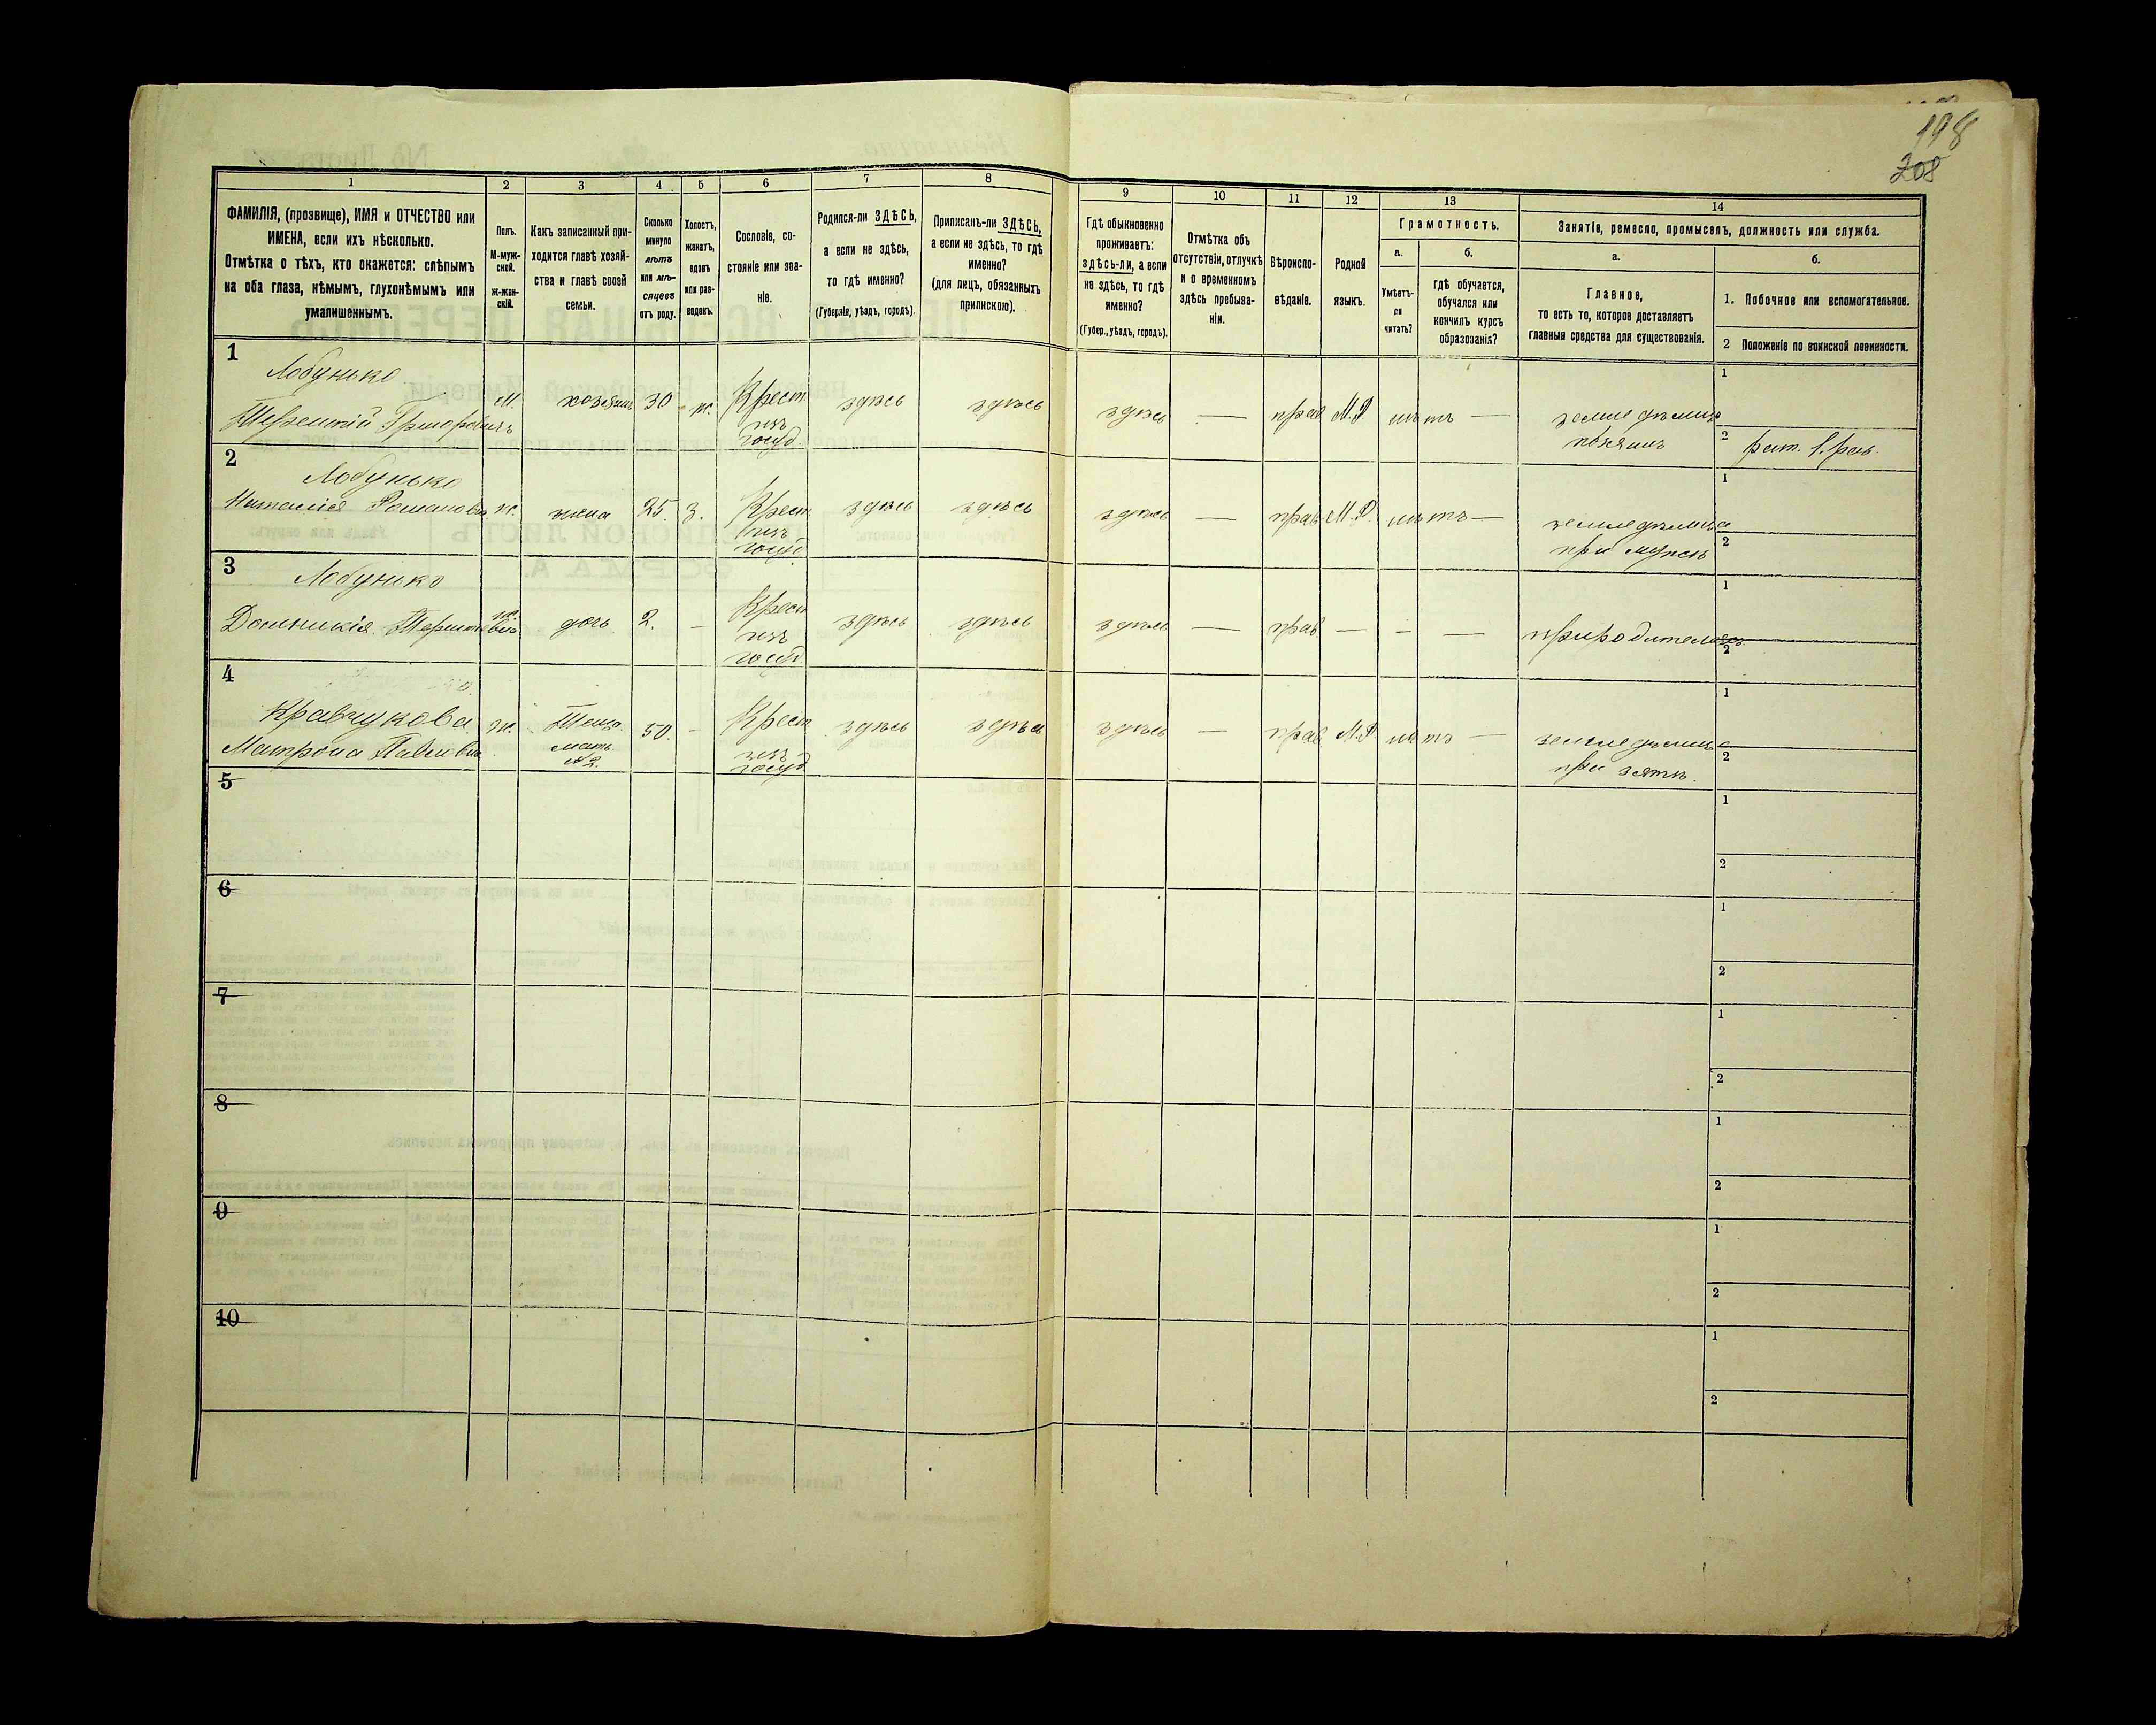 198
208
1
2
3
4
5
6
7
8
9
10
11
12
13
14
ФАМИЛІЯ, (прозвище), ИМЯ и ОТЧЕСТВО или
ИМЕНА, если ихъ нѣсколько.
Отмѣтка о тѣхъ, кто окажется: слѣпымъ
на оба глаза, нѣмымъ, глухонѣмымъ или
умалишеннымъ.
Полъ.
М-муж-
ской.
ж-жен-
скій.
Какъ записанный при-
ходится главѣ хозяй-
ства и главѣ своей
семьи.
Сколько
минуло
лѣтъ
или мѣ-
сяцевъ
отъ роду.
Холостъ,
женатъ,
вдовъ
или раз-
веденъ.
Сословіе, со-
стояніе или зва-
ніе.
Родился-ли ЗДѢСЬ,
а если не здѣсь,
то гдѣ именно?
(Губернія, уѣздъ, городъ).
Приписанъ-ли ЗДѢСЬ,
а если не здѣсь, то гдѣ
именно?
(для лицъ, обязанныхъ
припискою).
Гдѣ обыкновенно
проживаетъ:
здѣсь-ли, а если
не здѣсь, то гдѣ
именно?
(Губер., уѣздъ, городъ).
Отмѣтка объ
отсутствіи, отлучкѣ
и о временномъ
здѣсь пребыва-
ніи.
Вѣроиспо-
вѣданіе.
Родной
языкъ.
Грамотность.
а.
Умѣетъ-
ли
читать?
б.
гдѣ обучается,
обучался или
кончилъ курсъ
образованія?
Занятіе, ремесло, промыселъ, должность или служба.
а.
Главное,
то есть то, которое доставляетъ
главныя средства для существованія.
б.
1. Побочное или вспомогательное.
2 Положеніе по воинской повинности.
1
Лобунько
Терентій Григоровичъ
М.
хозяинъ
30
ж.
Крест
изъ
госуд.
здѣсь
здѣсь
здѣсь
—
прав
М.Р
нѣтъ
—
земледѣлецъ
хозяинъ
1
2
рат. 1. раз.
2
Лобунько
Наталія Романовна
ж.
жена
25.
з.
Крест
изъ
госуд.
здѣсь
здѣсь
здѣсь
—
прав
М.Р.
нѣтъ
—
земледѣлица
при мужѣ
1
2
3
Лобунько
Доминикія
ж.
дочь
2.
—
Крест
изъ
госуд.
здѣсь
здѣсь
здѣсь
—
прав
—
—
—
при родителяхъ
1
2
4
Кравчукова
Матрона Павловна
ж.
Теща.
мать
№2.
50.
—
Крест
изъ
госуд
здѣсь
здѣсь
здѣсь
—
прав
М.Р.
нѣтъ
—
земледѣлица
при зятѣ.
1
2
5
1
2
6
1
2
7
1
2
8
1
2
9
1
2
10
1
2